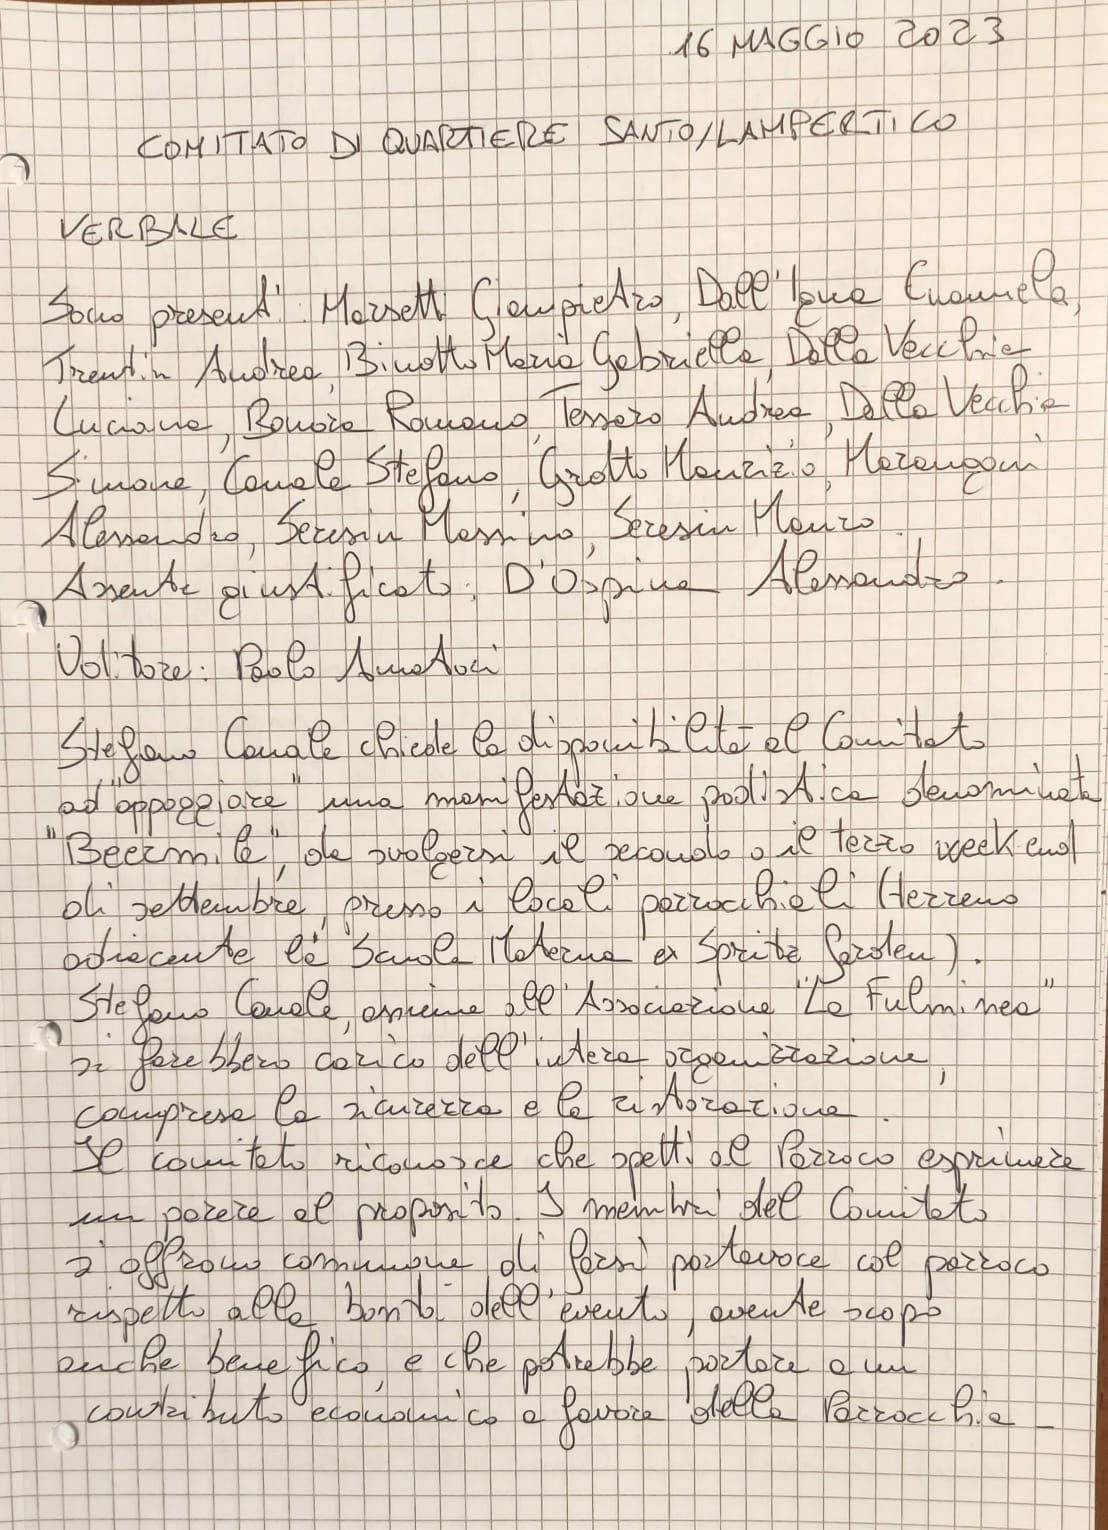 16 MAGGIO 2023
COMITATO DI QUARTIERE SANTO/LAMPERTICO
VERBALE
Sono presenti: Marsetti Giampietro, Dall'Igna Emanuela,
Trentin Andrea, Binotto Maria Gabriella, Dalla Vecchia
Luciana, Bonora Romano, Tessaro Andrea, Dalla Vecchia
Simone, Canale Stefano, Grotto Maurizio, Marangoni
Alessandro, Seresin Massimo, Seresin Mauro.
Assente giustificato: D'Ospina Alessandro.
Uditore: Paolo
Stefano Canale chiede la disponibilità al Comitato
ad "appoggiare" una manifestazione podistica denominata
"Beermile", da svolgersi il secondo o il terzo week end
di settembre, presso i locali parrocchiali (terreno
adiacente la Scuola Materna ex Spritz Garden).
Stefano Canale, assieme all'Associazione "La Fulminea"
si farebbero carico dell'intera organizzazione,
compresa la sicurezza e la ristorazione.
Il comitato riconosce che spetti al Parroco esprimere
un parere al proposito. I membri del Comitato
s'offrono comunque di farsi portavoce col parroco
rispetto alla bontà dell'evento, avente scopo
anche benefico, e che potrebbe portare a un
contributo economico a favore della Parrocchia -